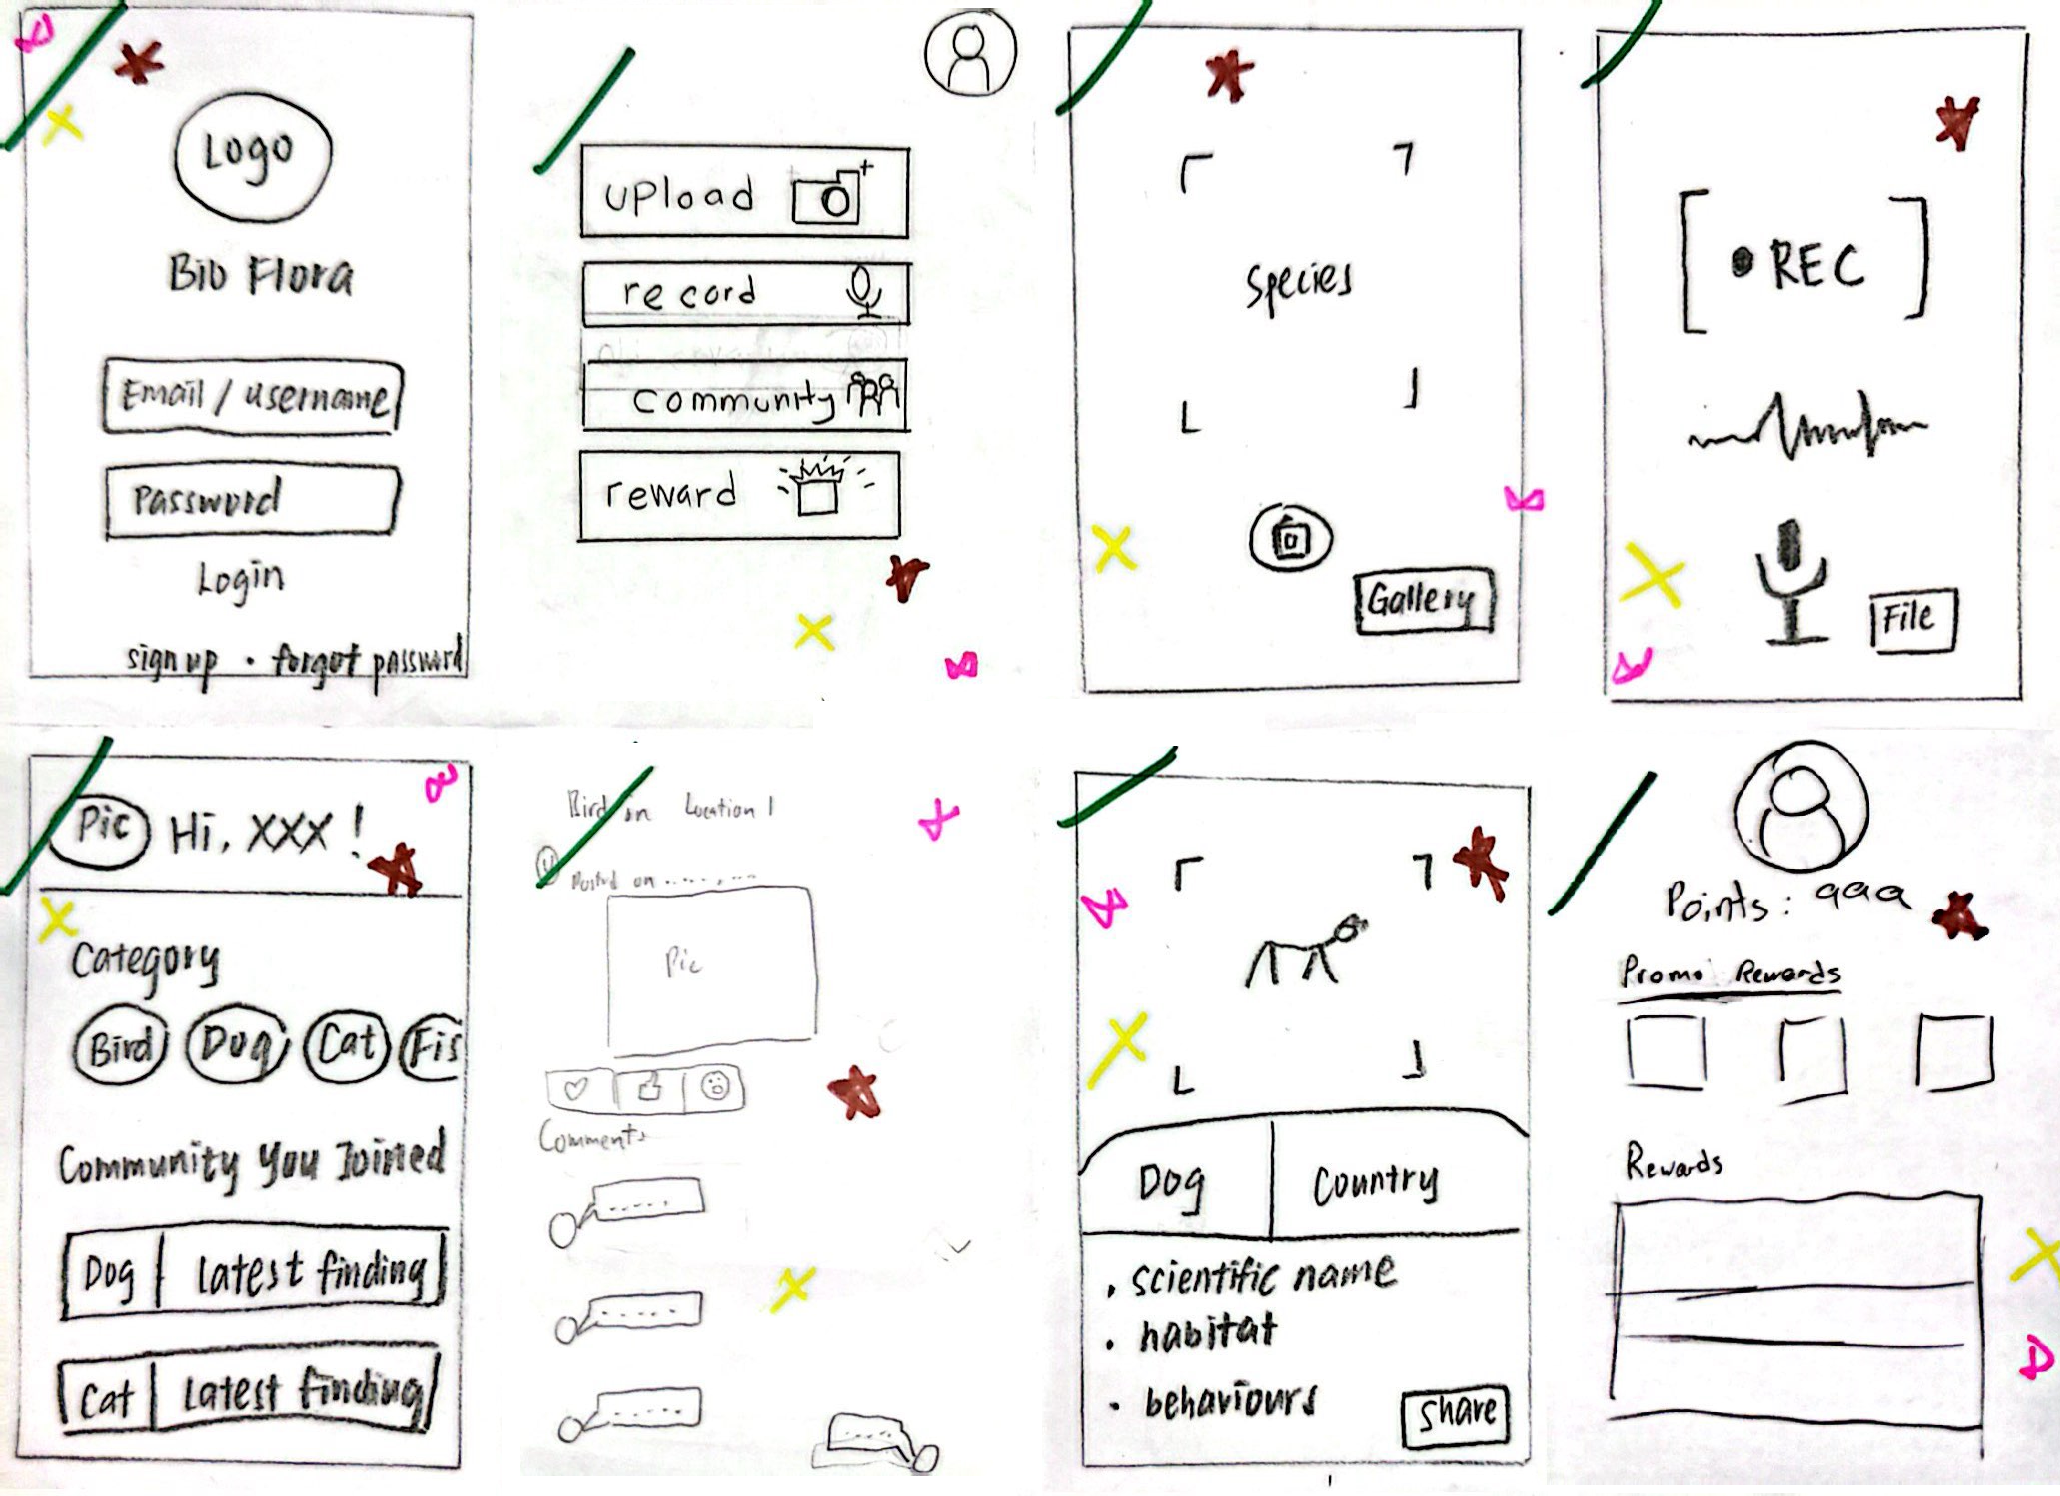 Logo
Bio Flora
Email / username
Password
Login
sign up . forgot password
upload
record
community
reward
Species
Gallery
REC
File
Pic Hi, XXX !
Category
Bird Dog Cat Fis
Community You Joined
Dog Latest finding
Cat Latest finding
Bird in Location 1
Posted on
Pic
Comments
Dog Country
. scientific name
. habitat
. behaviours
share
Points: 999
Promo Rewards
Rewards